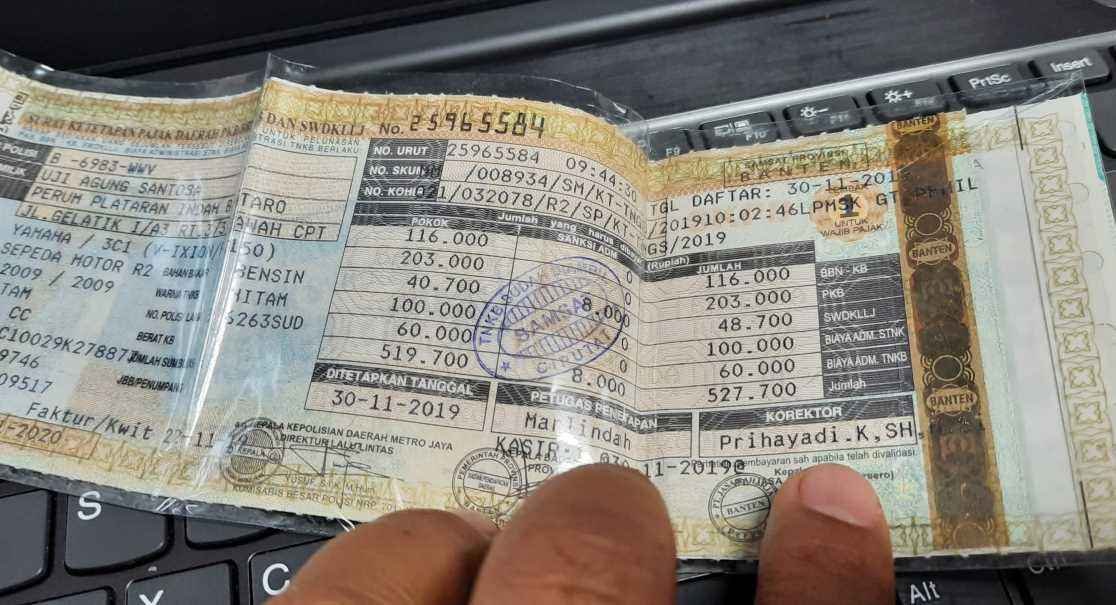 SURAT KETETAPAN PAJAK DAERAH PKB/BBN DAN SWDKLLJ
UNTUK PELUNASAN
TNKB BERLAKU
No. 25965584
POLISI
B -6983-WWV
UJI AGUNG SANTOSA
PERUM PLATARAN INDAH B TARO
JL.GELATIK I/A3 RT 3/3 ANAH CPT
YAMAHA / 3C1 (V-IXION/ 150)
SEPEDA MOTOR R2 BAHAN BAKAR BENSIN
2009 / 2009 WARNA TNKB HITAM
TAM NO. POLISI LAMA 6263SUD
CC BERAT KB
C10029K27887 JUMLAH SUMBU
9746 JBB/PENUMPANG
09517
Faktur/Kwit 27-11
-2020
NO. URUT 25965584 09:44:30
NO. SKUM /008934/SM/KT-TNG
NO. KOHIR 21/032078/R2/SP/KT- GS/2019
SAMSAT PROVINSI
BANTEN
TGL DAFTAR: 30-11-201
/201910:02:46LPMSK GT-PPHIL
1
UNTUK
WAJIB PAJAK
Jumlah yang harus dibayar (Rupiah)
POKOK SANKSI ADM JUMLAH
116.000 0 116.000 BBN - KB
203.000 0 203.000 PKB
40.700 8.000 48.700 SWDKLLJ
100.000 0 100.000 BIAYA ADM. STNK
60.000 0 60.000 BIAYA ADM. TNKB
519.700 8.000 527.700 Jumlah
SAMSAT
CIPUTAT
DITETAPKAN TANGGAL
30-11-2019
PETUGAS PENETAPAN
Marlindah
KOREKTOR
Prihayadi.K,SH.
KEPALA KEPOLISIAN DAERAH METRO JAYA
DIREKTUR LALU LINTAS
KOMISARIS BESAR POLISI NRP. 70
KASIR
-11-2019
pembayaran sah apabila telah divalidasi
PEMERINTAH PROVINSI
BANTEN
BANTEN
BANTEN
BANTEN
BANTEN
PrtSc
Insert
F9
F10
S
X
C
Alt
Ctrl